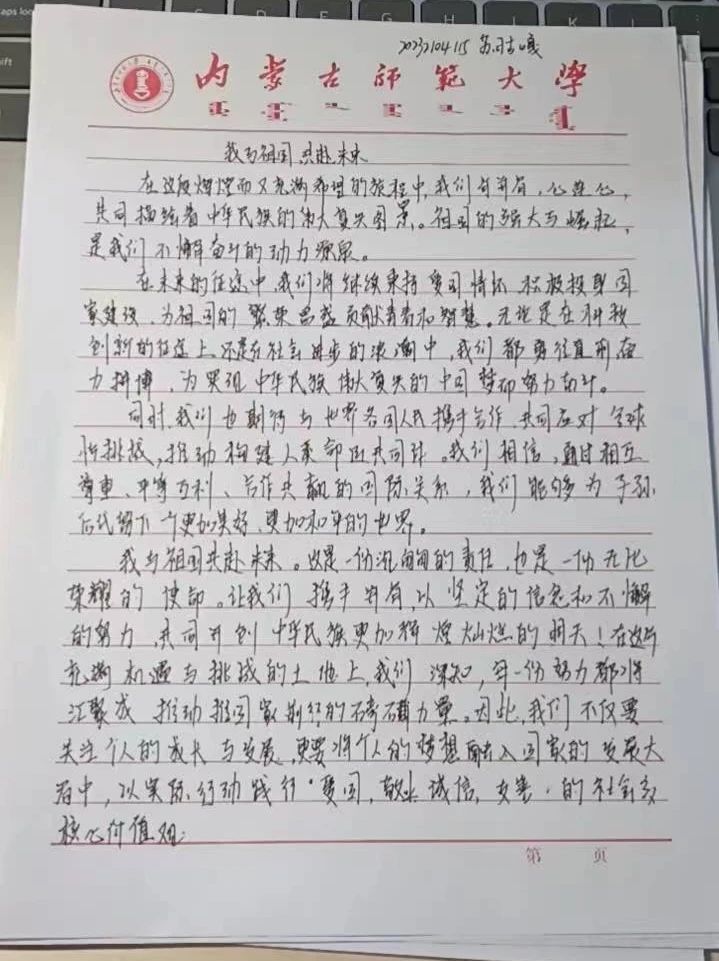 20232104115 苏日古嘎
内蒙古师范大学
我与祖国共赴未来
在这段辉煌而又充满希望的旅程中,我们肩并肩,心连心,
共同描绘着中华民族的伟大复兴图景。祖国的强大与崛起,
是我们不懈奋斗的动力源泉。
在未来的征途中,我们将继续秉持爱国情怀 积极投身国
家建设,为祖国的繁荣昌盛贡献青春和智慧。无论是在科技
创新的征途上,还是在社会进步的浪潮中,我们都勇往直前,奋
力拼搏,为实现中华民族伟大复兴的中国梦而努力奋斗。
同时,我们也期待与世界各国人民携手合作,共同应对全球
性挑战,推动构建人类命运共同体。我们相信,通过相互
尊重、平等互利、合作共赢的国际关系,我们能够为子孙
后代留下一个更加美好、更加和平的世界。
我与祖国共赴未来。这是一份沉甸甸的责任,也是一份无比
荣耀的使命。让我们携手并肩,以坚定的信念和不懈
的努力,共同开创中华民族更加辉煌灿烂的明天!在这片
充满机遇与挑战的土地上,我们深知,每一份努力都将
汇聚成推动推国家前行的磅礴力量。因此,我们不仅要
关注个人的成长与发展,更要将个人的梦想融入国家的发展大
局中,以实际行动践行"爱国,敬业,诚信,友善"的社会主义
核心价值观.
第 页